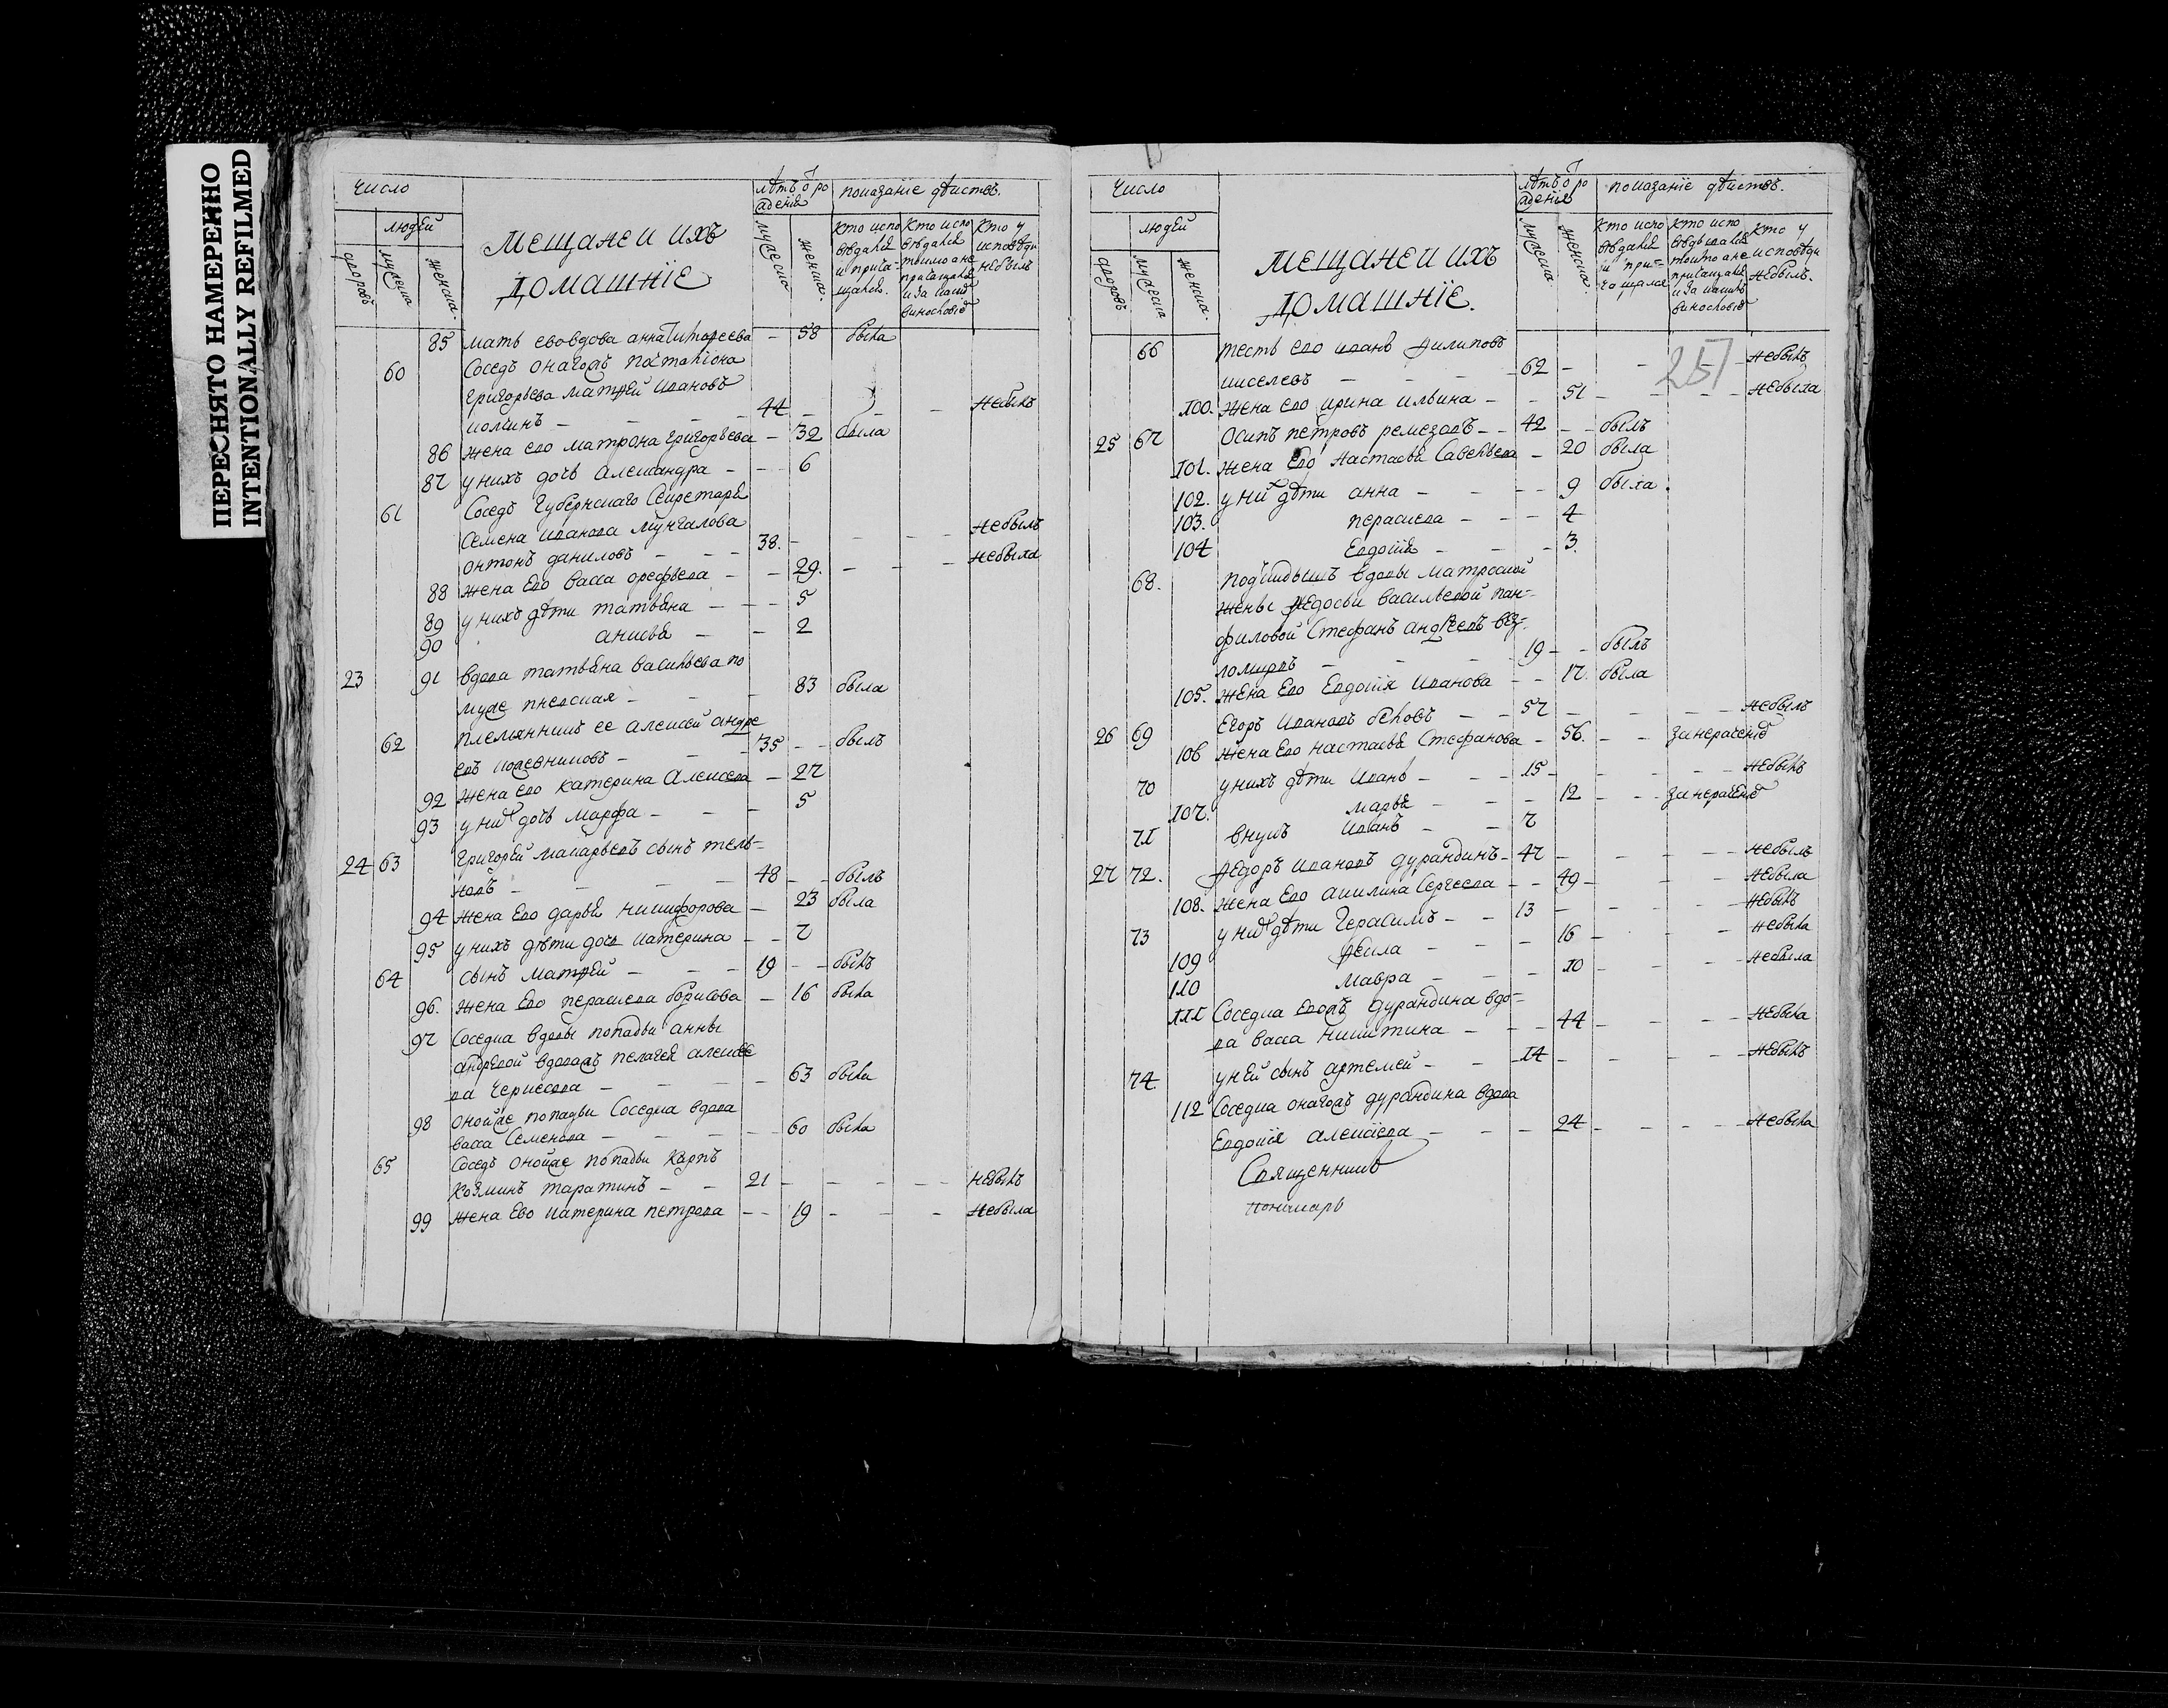 ПЕРЕСНЯТО НАМЕРЕННО
INTENTIONALLY REFILMED
Число
людей
дворовъ
мужеска
женска.
Мещане и ихъ
домашнїе
лѣтъ ѿ ро
жденія
мужеска
женска.
показанїе дѣйствъ.
кто испо
вѣдался
и прича-
щался.
кто испо
вѣдался
токмо а не
причащался
и за каким
винословіе
кто у
исповѣди
небылъ
85 мать ево вдова анна Тимофеева - 58 была
60 Соседъ онагожъ
Григорьева матфей Ивановъ
- - - 44 - - - небылъ
86 жена ево матрона григорьева - 32 была
87 у нихъ дочь Александра - - - 6
61 Соседъ Губернскаго Секретаря
Семена Иванова Мунгалова
онтонъ даниловъ - - - 38. - - - небылъ
88 жена Ево васса орефьева - - 29. - - - небыла
89 у нихъ дѣти татьяна - - - 5
90 анисья - - 2
23 91 вдова татьяна васильева по
муже - - - 83 была
62 племянникъ ее алексей андре
евъ - - 35 - - былъ
92 жена ево катерина Алексева - 27
93 у них дочь марфа - - - 5
24 63 Григорей макарьевъ сынъ тель-
новъ - - - - 48 - - былъ
94 жена Ево дарья никифорова - 23 была
95 у нихъ дѣти дочь катерина - - 7
64 сынъ матфей - - - 19 - - былъ
96. жена Ево параскева борисова - 16 была
97 Соседка вдовы попадьи анны
андревой вдоважъ пелагея алексее
ва Черкесова - - - - 63 была
98 онойже попадьи Соседка вдова
васса Семенова - - - - - 60 была
65 Соседъ онойже попадьи Карпъ
Козминъ таратинъ - - 21 - - - - - небылъ
99 жена Ево катерина петрова - - 19 - - - небыла
Число
людей
дворовъ
мужеска
женска.
Мещане и ихъ
домашнїе.
лѣтъ ѿ ро
жденія
мужеска
женска.
показанїе дѣйствъ.
кто испо
вѣдался
и при-
чащался
кто испо
вѣдывался
токмо а не
причащался
и за какимъ
винословіе
кто у
исповѣди
небылъ.
257
66 тесть ево иванъ филиповъ
киселевъ - - - - 62 - - - небылъ
100. жена ево ирина ильина - - 51 - - - - небыла
25 67 Осипъ петровъ ремезовъ - - 42 - - былъ
101. жена Ево Настасья Савельева - 20 была
102. у них дѣти анна - - - - 9 была.
103. параскева - - - 4
104 Евдокия - - - 3.
68. подкидышъ вдовы матроской
жены федосьи васильевой пан-
филовой Стефанъ андреевъ без-
- - - 19 - - былъ
105. жена Ево Евдокия Иванова - - 17. была
26 69 Егоръ Ивановъ беловъ - - 57 - - - - небылъ
106 жена Ево настасья Стефанова - 56. - - за нерачение
70 у нихъ дѣти Иванъ - - - 15 - - - - небылъ
107. марья - - - 12 - - - за нерачение
71 внукъ Иванъ - - 7
27 72. федоръ Ивановъ дурандинъ - 47 - - - - небылъ
108. жена Ево акилина Сергеева - - 49 - - - небыла
73 у них дѣти Герасимъ - - 13 - - - небылъ
109 фекла - - - 16 - - - небыла
110 мавра - - - 10 - - - небыла
111 Соседка Евожъ дурандина вдо-
ва васса никитина - - - 44 - - - небыла
74. у ней сынъ артемей - - 14 - - - - небылъ
112 Соседка онагожъ дурандина вдова
Евдокия алексиева - - - 24 - - - - небыла
Священникъ
пономарь